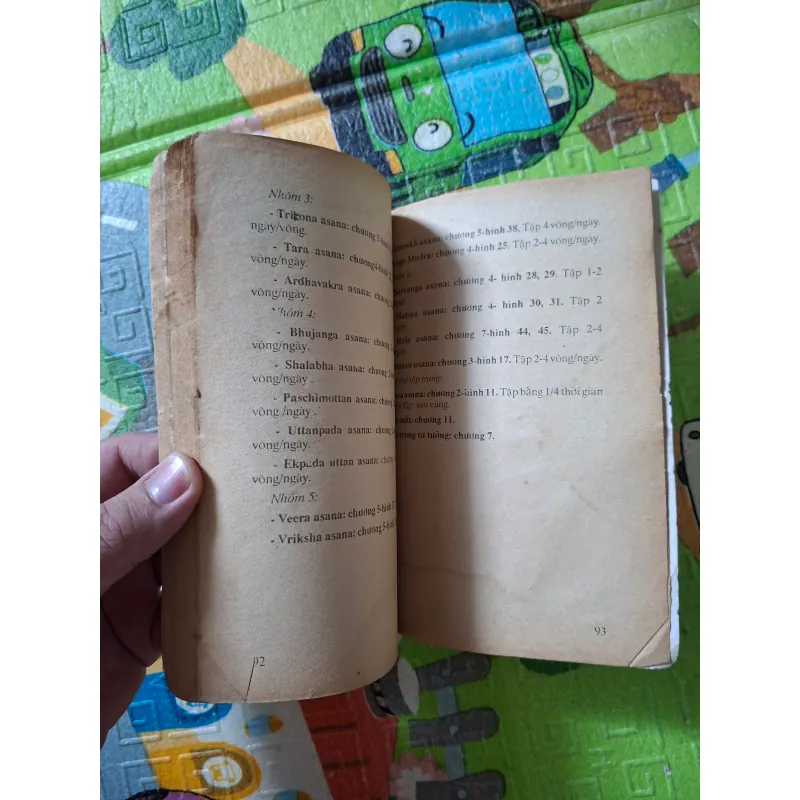 Nhóm 3:
- Trikona asana: chương 5-hình
ngày/vòng.
- Tara asana: chương4-hình
vòng/ngày.
- Ardhavakra asana: chương
vòng/ngày.
Nhóm 4:
- Bhujanga asana: chương
vòng/ngày.
- Shalabha asana: chương
vòng/ngày .
- Paschimottan asana: chương
vòng /ngày .
- Uttanpada asana: chương
vòng/ngày.
- Ekpada uttan asana: chương
vòng/ngày.
Nhóm 5:
- Veera asana: chương 5-hình
- Vriksha asana: chương 5-hình
92
asana: chương 5-hình 38. Tập 4 vòng/ngày.
Mudra: chương 4-hình 25. Tập 2-4 vòng/ngày.
asana: chương 4- hình 28, 29. Tập 1-2
asana: chương 4- hình 30, 31. Tập 2
asana: chương 7-hình 44, 45. Tập 2-4
asana: chương 3-hình 17. Tập 2-4 vòng/ngày.
tập trung:
asana: chương 2-hình 11. Tập bằng 1/4 thời gian
tập sau cùng.
chương 11.
trung tư tưởng: chương 7.
93